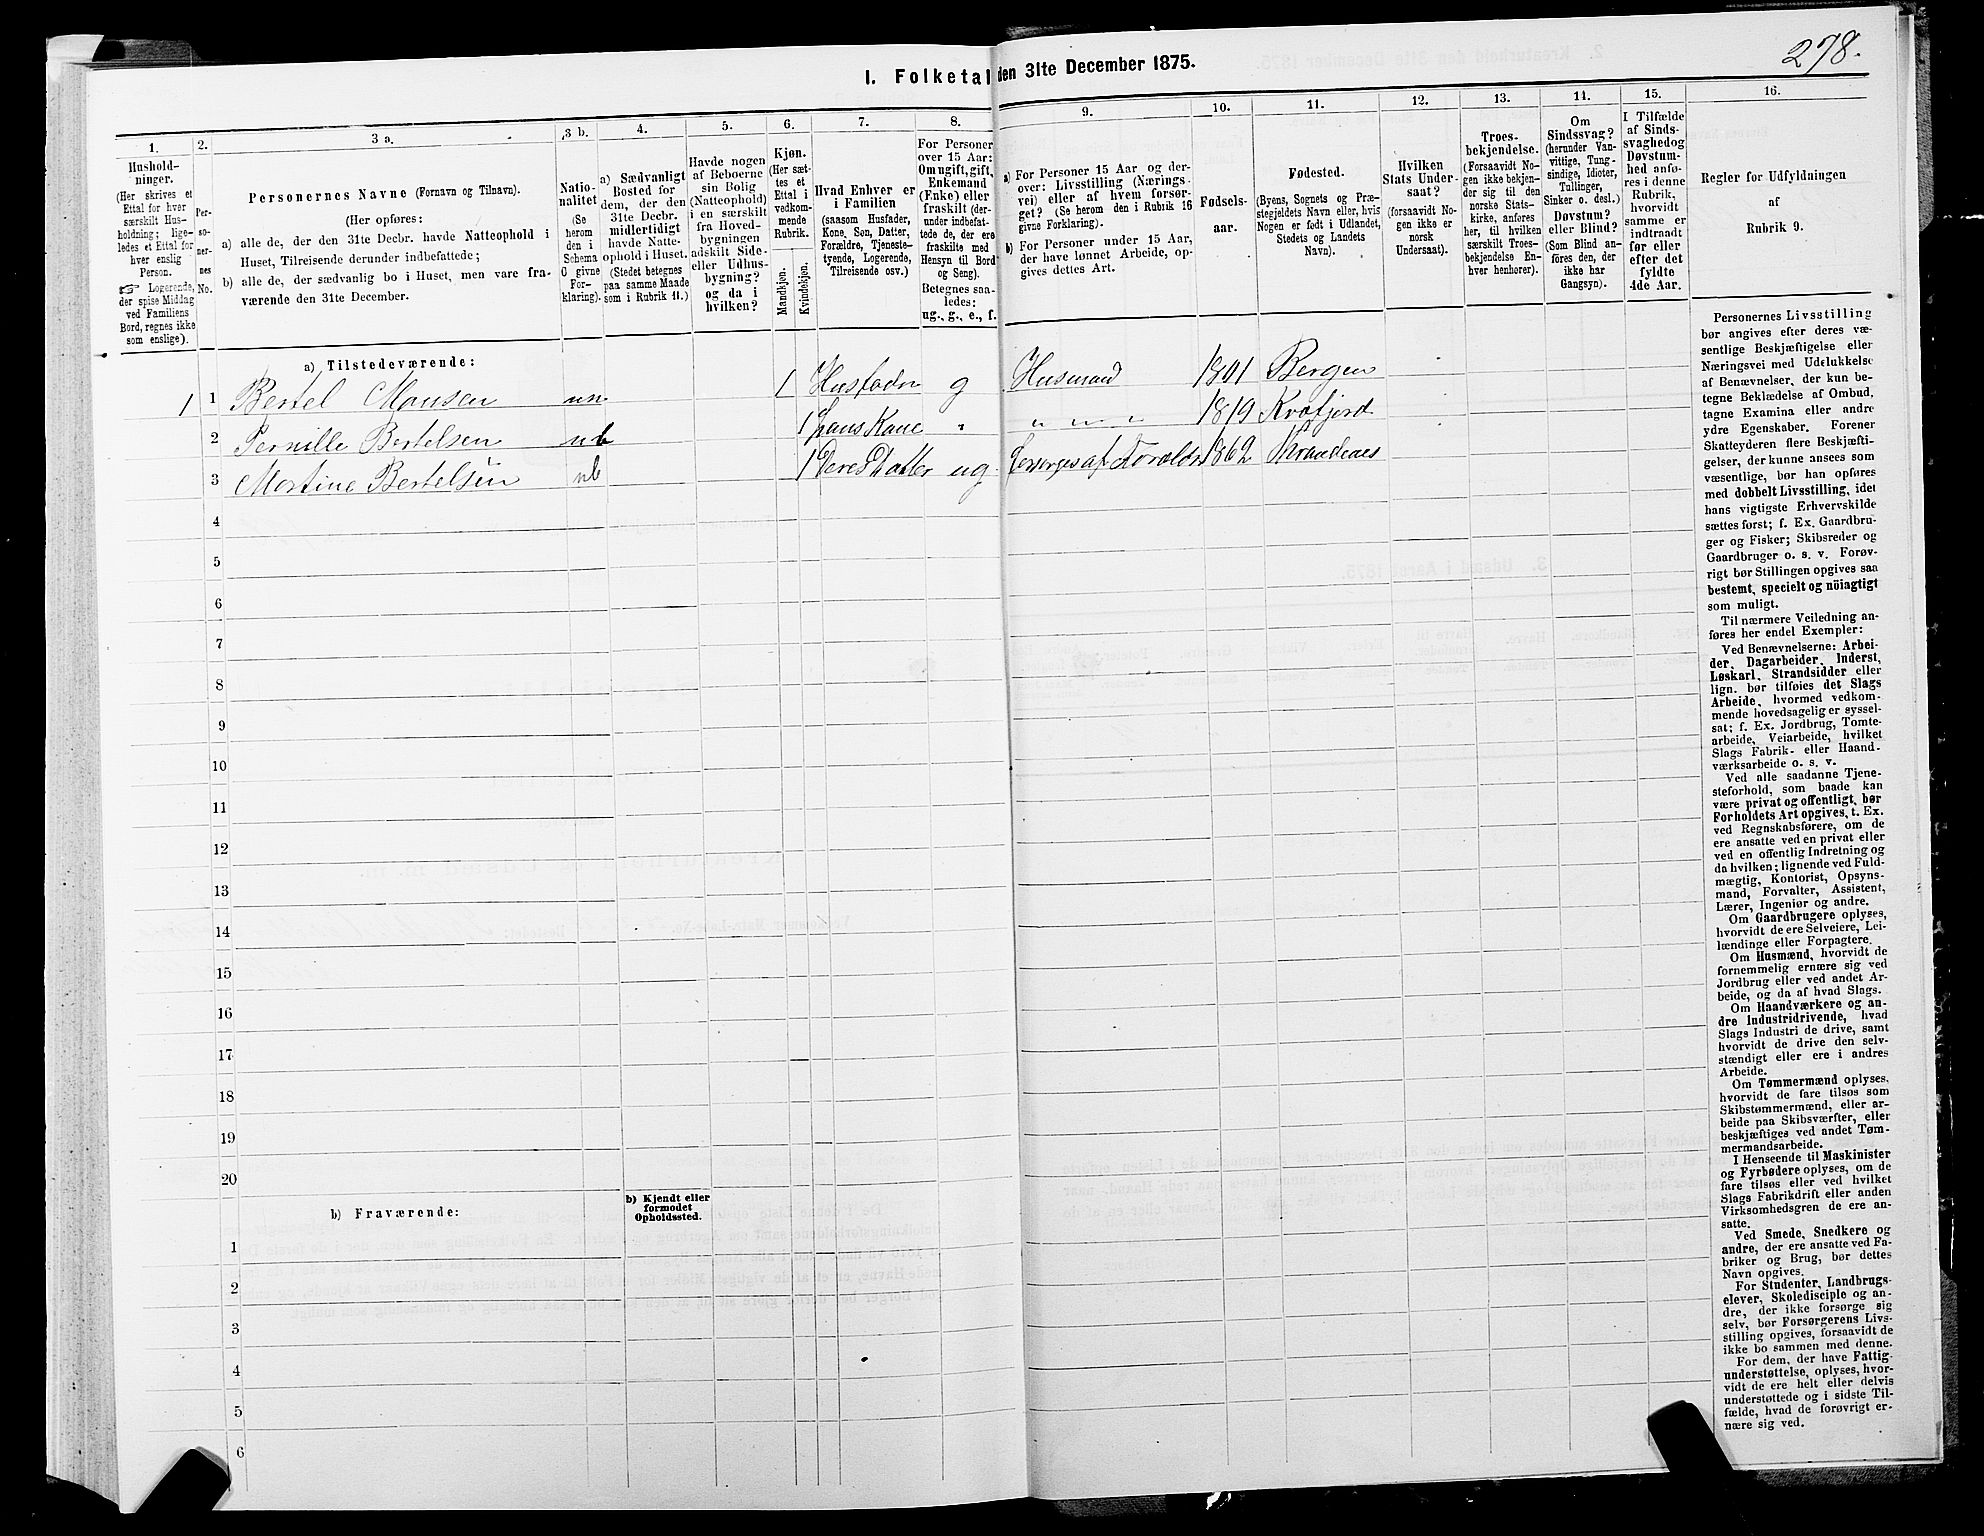 278.
I. Folketal den 31te December 1875.
1.
Hushold-
ninger.
(Her skrives et
Ettal for hver
særskilt Hus-
holdning; lige-
ledes et Ettal for
hver enslig
Person.
☞ Logerende,
der spise Middag
ved Familiens
Bord, regnes ikke
som enslige).
2.
Per-
so-
ner-
nes
No.
3 a.
Personernes Navne (Fornavn og Tilnavn).
(Her opføres:
a) alle de, der den 31te Decbr. havde Natteophold i
Huset, Tilreisende derunder indbefattede;
b) alle de, der sædvanlig bo i Huset, men vare fra-
værende den 31te December.
3 b.
Natio-
nalitet
(Se
herom
den i
Schema
C givne
For-
klaring).
4.
a) Sædvanligt
Bosted for
dem, der den
31te Decbr.
midlertidigt
havde Natte-
ophold i Huset.
(Stedet betegnes
paa samme Maade
som i Rubrik 11.)
5.
Havde nogen
af Beboerne
sin Bolig
(Natteophold)
i en særskilt
fra Hoved-
bygningen
adskilt Side-
eller Udhus-
bygning?
og da i
hvilken?
6.
Kjøn.
(Her sæt-
tes et
Ettal i
vedkom-
mende
Rubrik.
Mandkjøn.
Kvindekjøn.
7.
Hvad Enhver er
i Familien
(saasom Husfader,
Kone, Søn, Datter,
Forældre, Tjeneste-
tyende, Logerende,
Tilreisende osv.)
8.
For Personer
over 15 Aar:
Om ugift, gift,
Enkemand
(Enke) eller
fraskilt (der-
under indbefat-
tede de, der ere
fraskilte med
Hensyn til Bord
og Seng).
Betegnes saa-
ledes:
ug., g., e., f.
9.
a) For Personer 15 Aar og der-
over: Livsstilling (Nærings-
vei) eller af hvem forsør-
get? (Se herom den i Rubrik 16
givne Forklaring).
b) For Personer under 15 Aar,
der have lønnet Arbeide, op-
gives dettes Art.
10.
Fødsels-
aar.
11.
Fødested.
(Byens, Sognets og Præ-
stegjeldets Navn eller, hvis
Nogen er født i Udlandet,
Stedets og Landets
Navn).
12.
Hvilken
Stats Under-
saat?
(forsaavidt No-
gen ikke er
norsk
Undersaat).
13.
Troes-
bekjendelse.
(Forsaavidt No-
gen ikke bekjen-
der sig til den
norske Stats-
kirke, anføres
her, til hvilken
særskilt Troes-
bekjendelse En-
hver henhører).
14.
Om
Sindssvag?
(herunder Van-
vittige, Tung-
sindige, Idioter,
Tullinger,
Sinker o. desl.)
Døvstum?
eller Blind?
(Som Blind an-
føres den, der
ikke har
Gangsyn).
15.
I Tilfælde
af Sinds-
svaghed og
Døvstum-
hed anfø-
res i denne
Rubrik,
hvorvidt
samme er
indtraadt
før eller
efter det
fyldte
4de Aar.
16.
Regler for Udfyldningen
af
Rubrik 9.
a) Tilstedeværende:
1 1 Bertel Monsen nn 1 Husfader g Husmand 1801 Bergen
2 Pernille Bertelsen nb 1 hans Kone " " " " 1819 Kvæfjord
3 Martine Bertelsen nb 1 Deres Datter ug forsørges af Foreldr 1862 Thrandenes
4
5
6
7
8
9
10
11
12
13
14
15
16
17
18
19
20
b) Fraværende:
b) Kjendt eller
formodet
Opholdssted.
1
2
3
4
5
6
Personernes Livsstilling
bør angives efter deres væ-
sentlige Beskjæftigelse eller
Næringsvei med Udelukkelse
af Benævnelser, der kun be-
tegne Beklædelse af Ombud,
tagne Examina eller andre
ydre Egenskaber. Forener
Skatteyderen flere Beskjæfti-
gelser, der kunne ansees som
væsentlige, bør han opføres
med dobbelt Livsstilling, idet
hans vigtigste Erhvervskilde
sættes først; f. Ex. Gaardbru-
ger og Fisker; Skibsreder og
Gaardbruger o. s. v. Forøv-
rigt bør Stillingen opgives saa
bestemt, specielt og nöiagtigt
som muligt.
Til nærmere Veiledning an-
føres her endel Exempler:
Ved Benævnelserne: Arbei-
der, Dagarbeider, Inderst,
Løskarl, Strandsidder eller
lign. bør tilføies det Slags
Arbeide, hvormed vedkom-
mende hovedsagelig er syssel-
sat; f. Ex. Jordbrug, Tomte-
arbeide, Veiarbeide, hvilket
Slags Fabrik- eller Haand-
værksarbeide o. s. v.
Ved alle saadanne Tjene-
steforhold, som baade kan
være privat og offentligt, bør
Forholdets Art opgives, t. Ex.
ved Regnskabsførere, om de
ere ansatte ved en privat eller
ved en offentlig Indretning og
da hvilken; lignende ved Fuld-
mægtig, Kontorist, Opsyns-
mand, Forvalter, Assistent,
Lærer, Ingeniør og andre.
Om Gaardbrugere oplyses,
hvorvidt de ere Selveiere, Lei-
lændinge eller Forpagtere.
Om Husmænd, hvorvidt de
fornemmelig ernære sig ved
Jordbrug eller ved andet Ar-
beide, og da af hvad Slags.
Om Haandværkere og an-
dre Industridrivende, hvad
Slags Industri de drive, samt
hvorvidt de drive den selv-
stændigt eller ere i andres
Arbeide.
Om Tømmermænd oplyses,
hvorvidt de fare tilsøs som
Skibstømmermænd, eller ar-
beide paa Skibsværfter, eller
beskjæftiges ved andet Tøm-
mermandsarbeide.
I Henseende til Maskinister
og Fyrbødere oplyses, om de
fare tilsøs eller ved hvilket
Slags Fabrikdrift eller anden
Virksomhedsgren de ere an-
satte.
Ved Smede, Snedkere og
andre, der ere ansatte ved Fa-
briker og Brug, bør dettes
Navn opgives.
For Studenter, Landbrugs-
elever, Skoledisciple og an-
dre, der ikke forsørge sig
selv, bør Forsørgerens Livs-
stilling opgives, forsaavidt de
ikke bo sammen med denne.
For dem, der have Fattig-
understøttelse, oplyses, hvor-
vidt de ere helt eller delvis
understøttede og i sidste Til-
fælde, hvad de forøvrigt er-
nære sig ved.